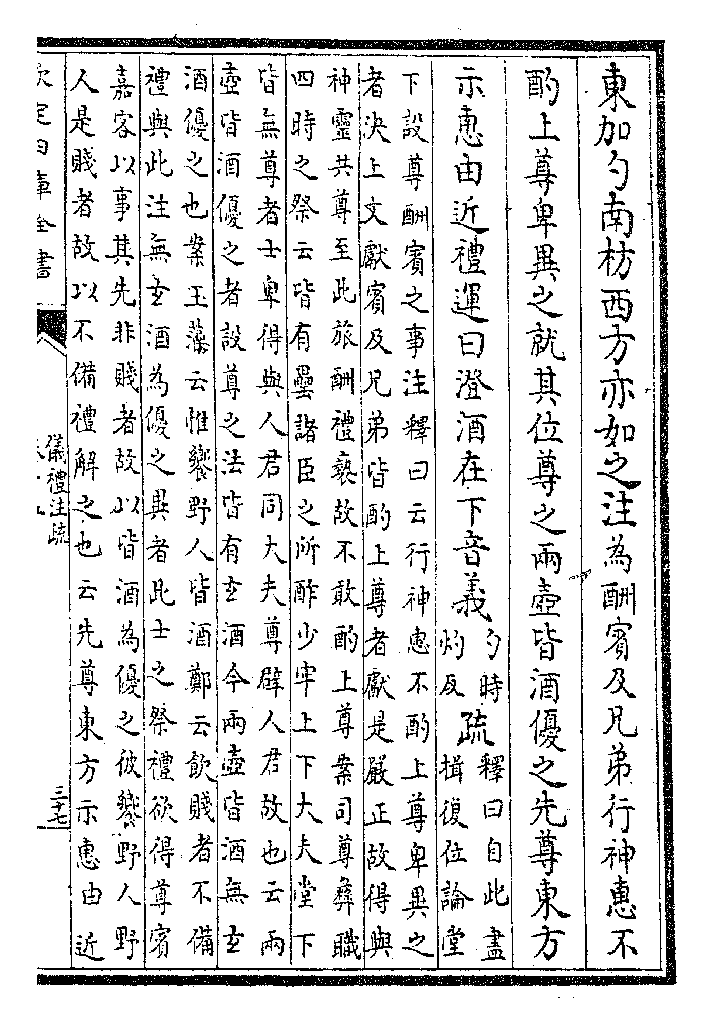 東加勺南枋西方亦如之注為酬賓及兄弟行神惠不
酌上尊卑異之就其位尊之兩壺皆酒優之先尊東方
示惠由近禮運曰澄酒在下音義
勺時
灼反
疏
釋曰自此盡
揖復位論堂
下設尊酬賓之事注釋曰云行神惠不酌上尊卑異之
者決上文獻賓及兄弟皆酌上尊者獻是嚴正故得與
神靈共尊至此旅酬禮褻故不敢酌上尊案司尊彞職
四時之祭云皆有罍諸臣之所酢少牢上下大夫堂下
皆無尊者士卑得與人君同大夫尊辟人君故也云兩
壺皆酒優之者設尊之法皆有玄酒今兩壺皆酒無玄
酒優之也案玉藻云惟饗野人皆酒鄭云飲賤者不備
禮與此注無玄酒為優之異者此士之祭禮欲得尊賓
嘉客以事其先非賤者故以皆酒為優之彼饗野人野
人是賤者故以不備禮解之也云先尊東方示惠由近
欽定四庫全書
儀禮注疏
三十七